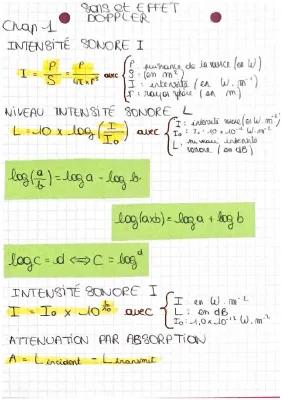 SONS et EFFET
DOPPLER
Chap 1
INTENSITÉ SONORE I
I = P/S = P/4πr² avec { P : puissance de la source (en W)
S : (en m²)
I : intensité (en W.m⁻²)
r : rayon sphère (en m)
NIVEAU INTENSITÉ SONORE L
L = 10 × log(I/I₀) avec { I : intensité sonore (en W.m⁻²)
I₀ : I₀ = 1,0 × 10⁻¹² W.m⁻²
L : niveau intensité
sonore (en dB)
log(a/b) = log a - log b
log(a×b) = log a + log b
log c = d ⟺ C = 10^d
INTENSITÉ SONORE I
I = I₀ × 10^(L/10) avec { I : en W.m⁻²
L : en dB
I₀ : 1,0 × 10⁻¹² W.m⁻²
ATTENUATION PAR ABSORPTION
A = L incident - L transmit